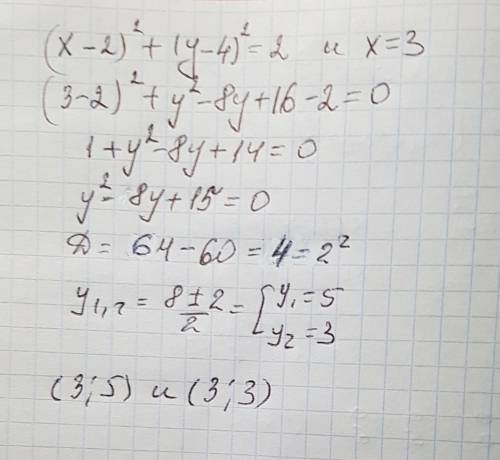 (x-2)² + (y-4)² = 2 и x=3
(3-2)² + y² - 8y + 16 - 2 = 0
1 + y² - 8y + 14 = 0
y² - 8y + 15 = 0
Д = 64 - 60 = 4 = 2²
y₁,₂ = (8 ± 2)/2 = [y₁ = 5
y₂ = 3
(3; 5) и (3; 3)